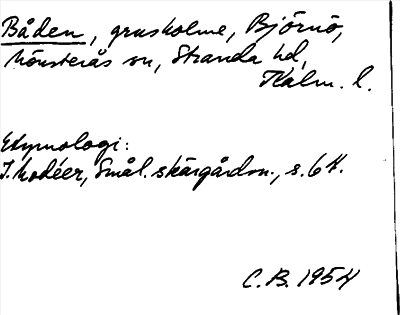 Båden, grusholme, Björnö,
Mönsterås sn, Stranda hd,
Kalm. l.
Etymologi:
I. Modéer, Smål. skärgårdsn., s. 64.
C.B. 1954